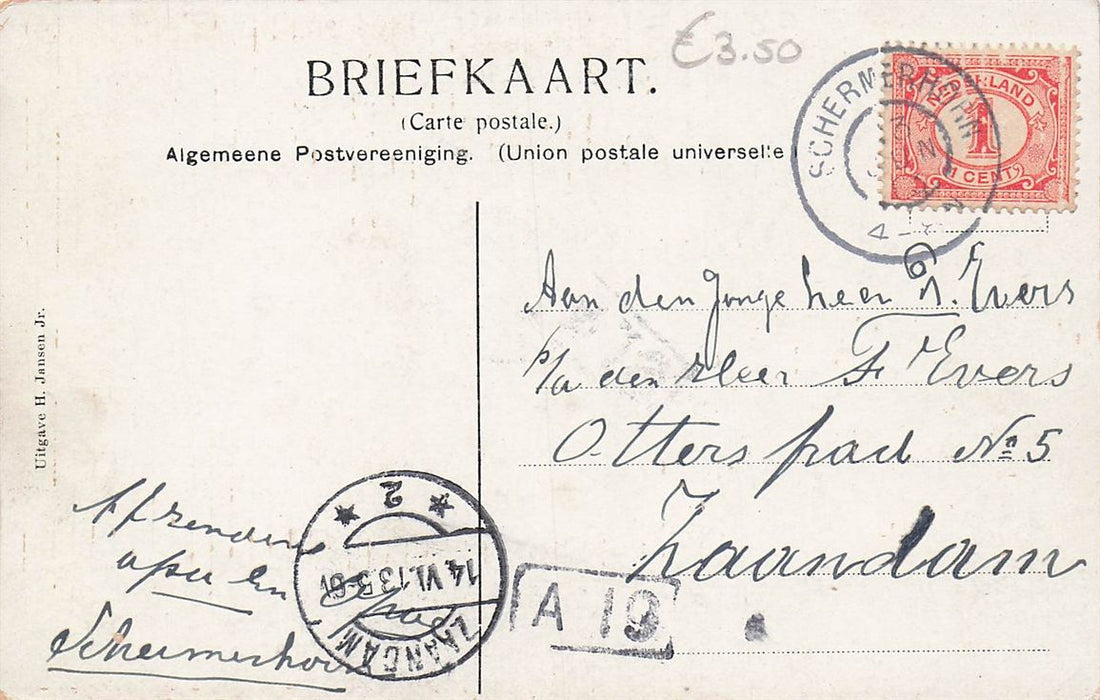 €3.50
BRIEFKAART.
(Carte postale.)
Algemeene Postvereeniging. (Union postale universelle
SCHERMERHORN
4-8
NEDERLAND
1
1 CENT
Aan den Jonge heer G. Evers
p/a den Heer F Evers
Otterspad № 5
Zaandam
Uitgave H. Jansen Jr.
Afzender
opa en
Schermerhorn
* 2 *
14 VI.13 5-6
ZAANDAM
A 19